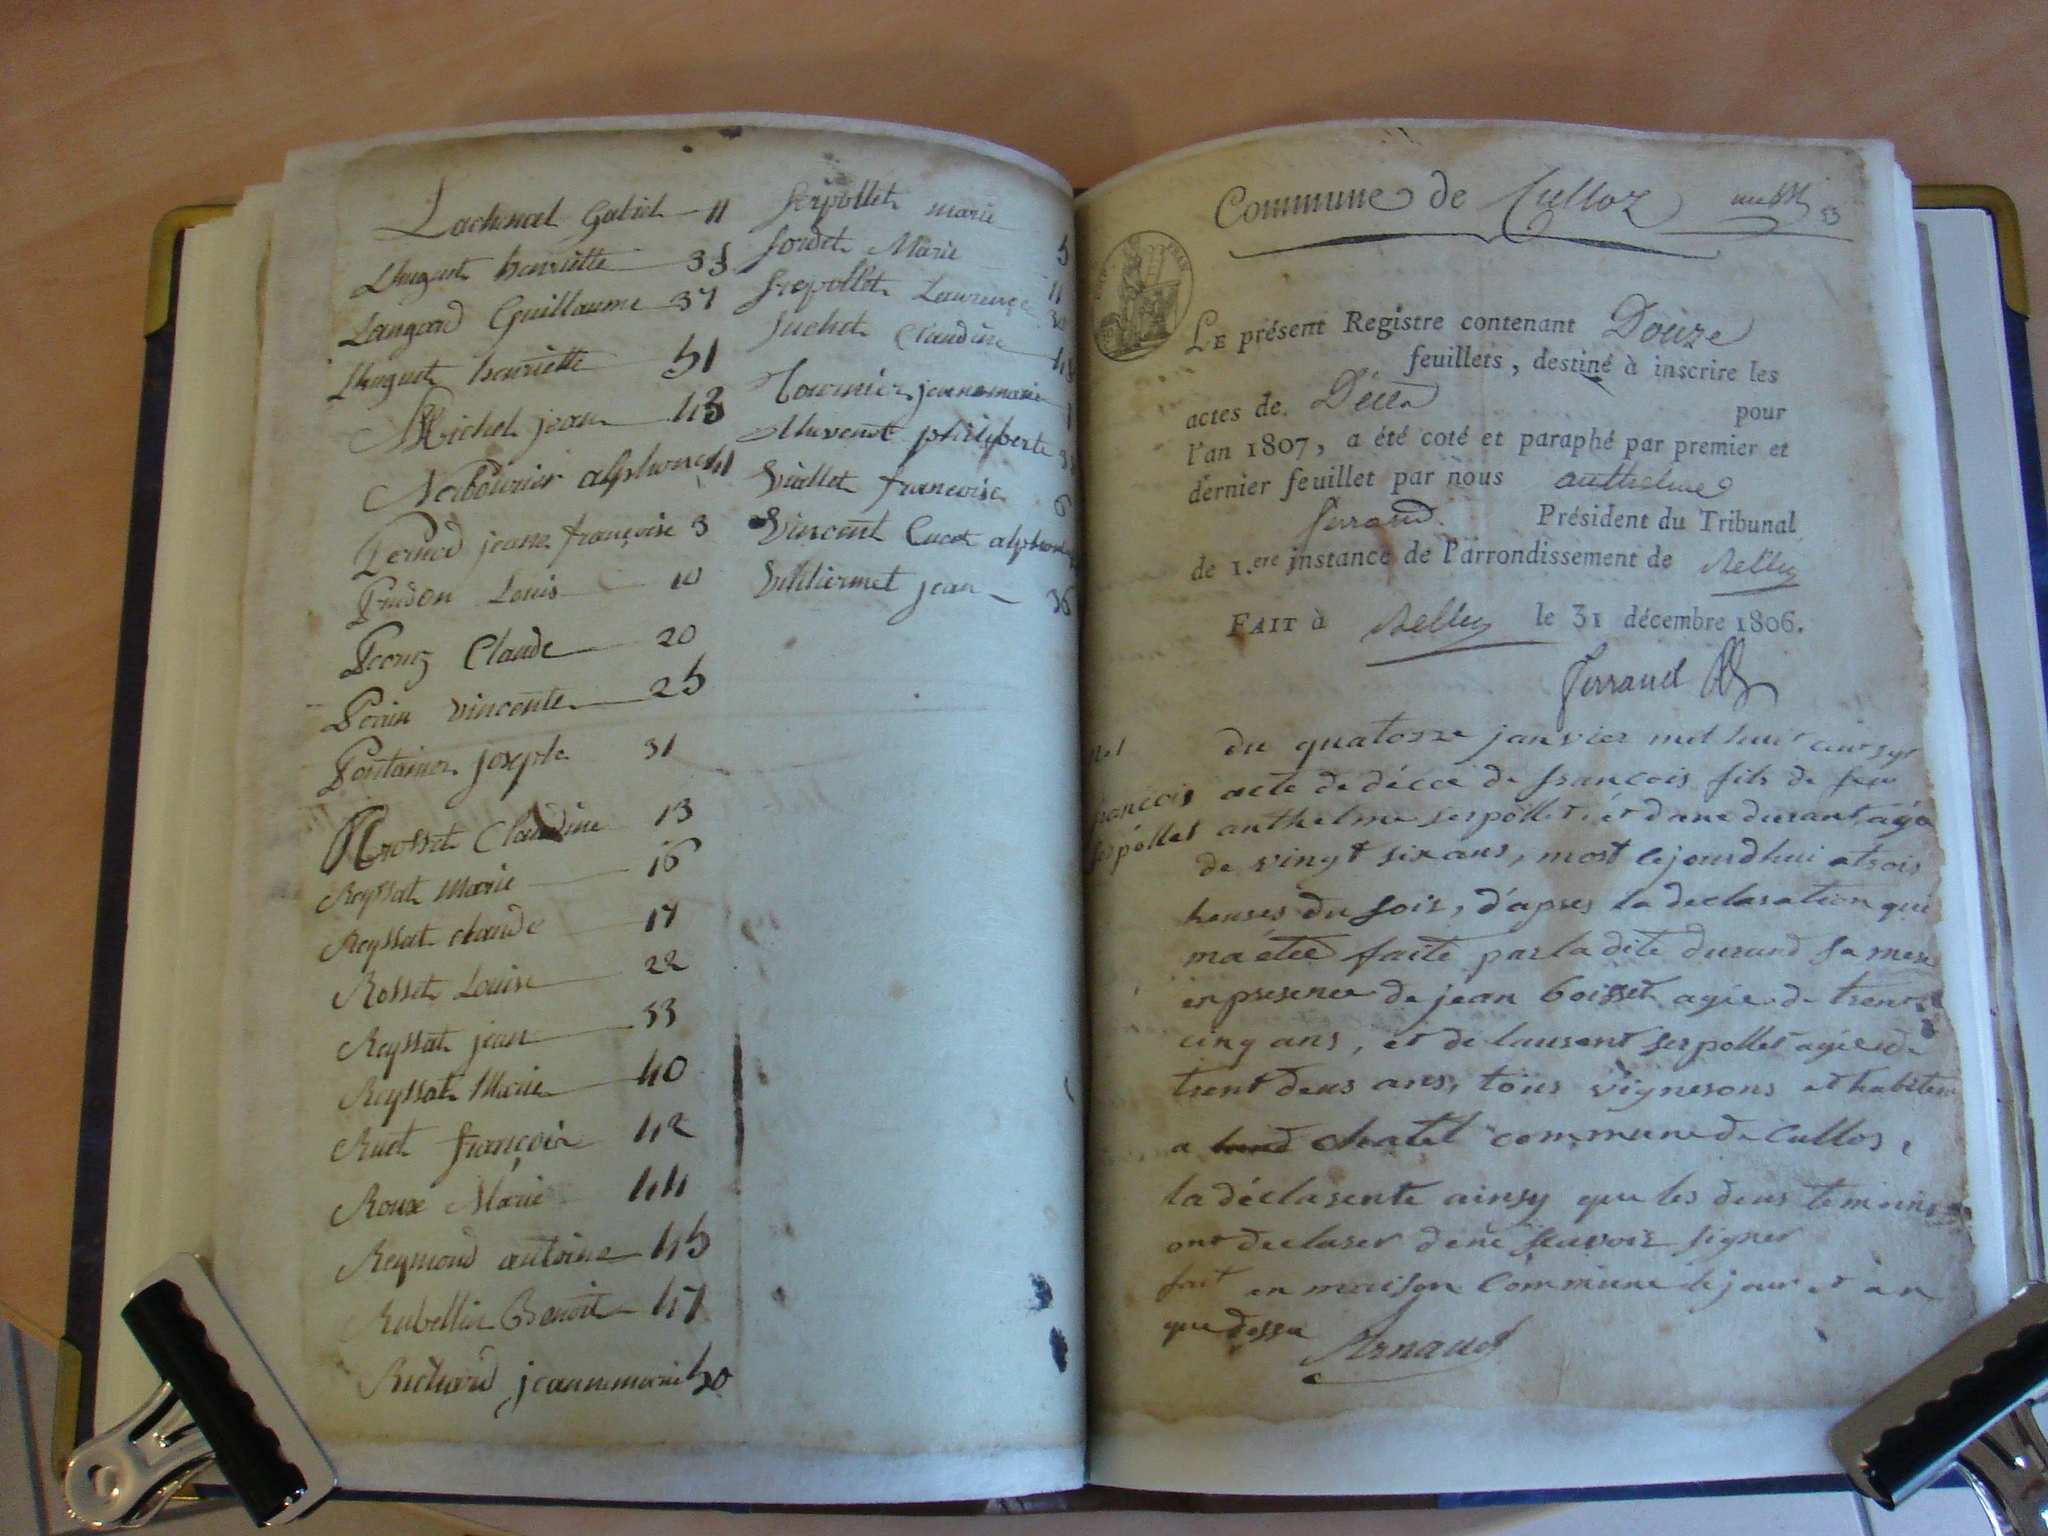 Lachinal Gabriel 11
Huguet henriette 33
Langard Guillaume 37
Huguet henriette 51
Michel jean 43
alphonse 41
Pernod jeanne françoise 3
Prudon Louis 10
Claude 20
vincente 25
joseph 31
Rosset Claudine 13
Reyssat Marie 16
Reyssat claude 17
Rosset Louise 22
Reyssat jean 33
Reyssat Marie 40
Ruet françois 42
Roux Marie 44
Reymond antoine 45
Rubellin Benoit 47
Richard jeannemarie 50
Serpollet marie
Sordet Marie 5
Serpollet Laurence 11
Suchet Claudine
Tournier jeannemarie
Thuvenot philiberte
Viallet françoise 6
Vincent Lucot
Vuilliermet jean 36
Commune de Culloz
53
LE présent Registre contenant Douze
feuillets, destiné à inscrire les
actes de Décès pour
l'an 1807, a été coté et paraphé par premier et
dernier feuillet par nous anthelme
ferrand Président du Tribunal
de 1.ere instance de l'arrondissement de Belley
FAIT à Belley le 31 décembre 1806.
Ferrand
françois
serpollet
du quatorze janvier mil huit cent sept
acte de décce de francois fils de feu
anthelme serpollet, et dane durant agé
de vingt six ans, mort cejourdhui a trois
heures du soir, d'apres la declaration qui
ma étée faite par la dite durand sa mere
en presence de jean boisset agée de trente
cinq ans, et de laurent serpollet agée de
trent deus ans, tous vignerons et habitent
a chatel commune de Cullos,
la déclarente ainsy que les deus temoins
ont declarer de ne scavoir signer
fait en maison Commune le jour et an
que dessu
Arnaud